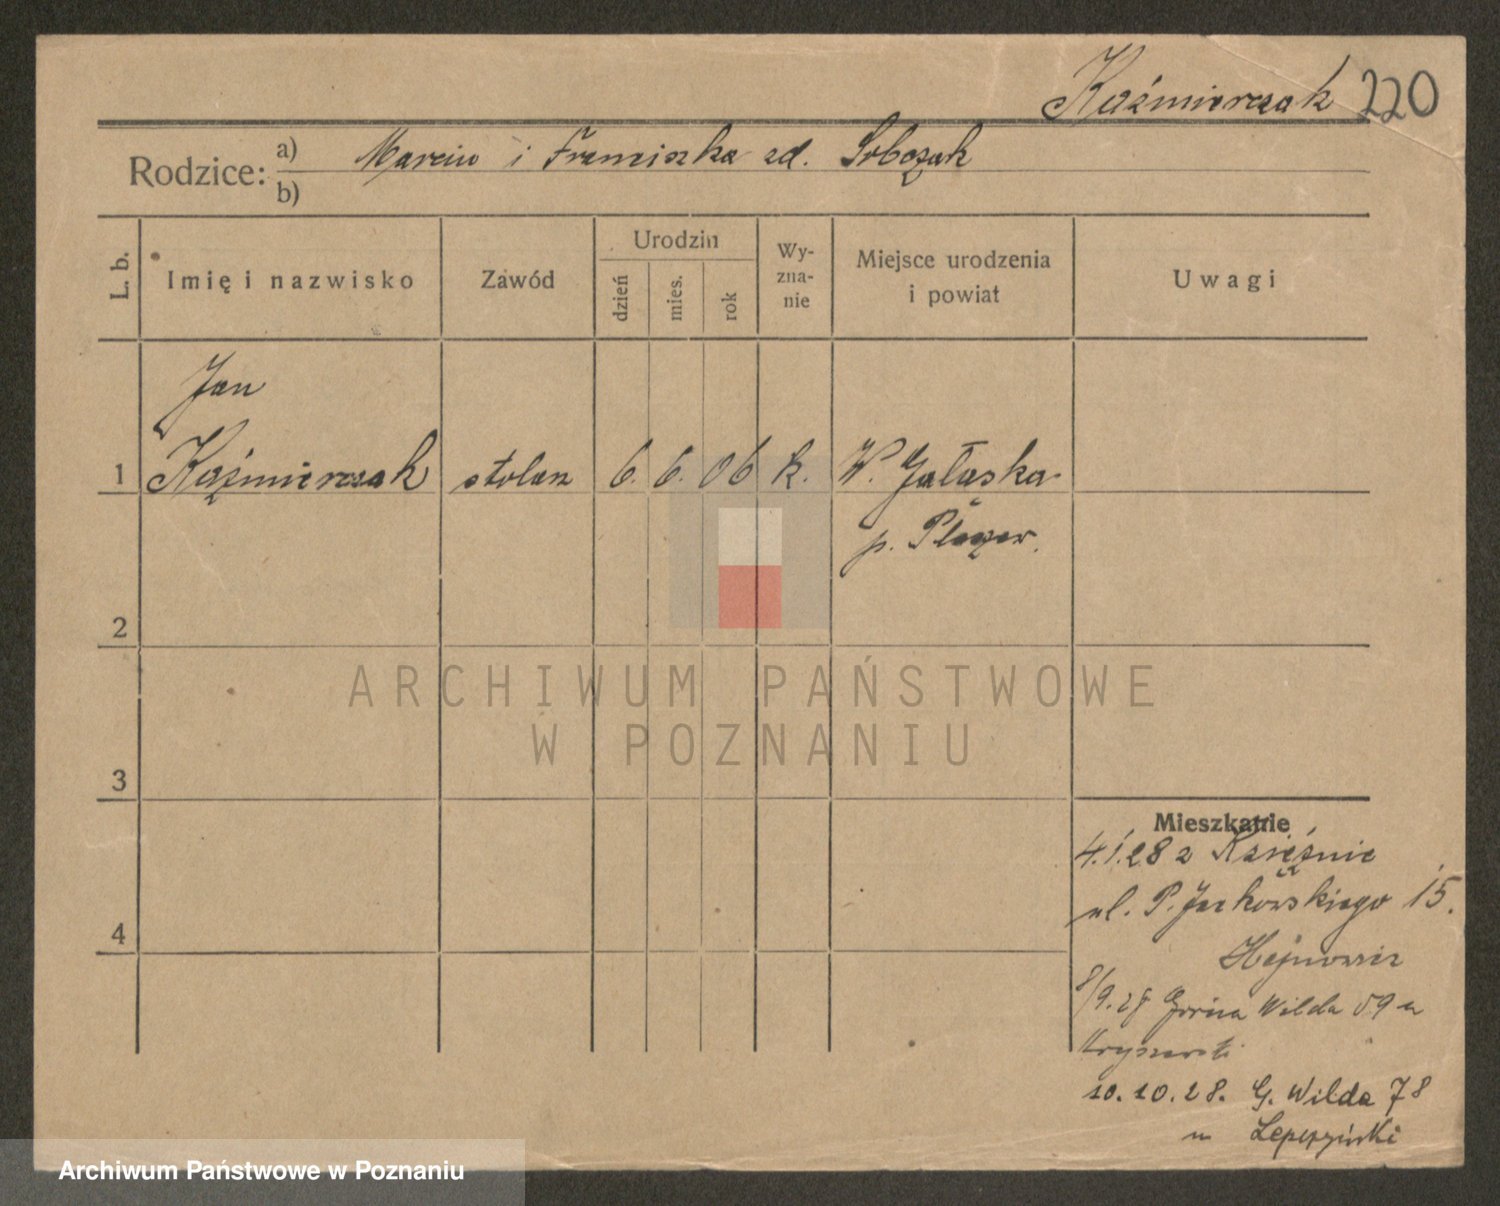 Kaźmierczak 220
Rodzice: a) Marcin i Franciszka zd. Sobczak
b)
L. b.
Imię i nazwisko
Zawód
Urodzin
dzień
mies.
rok
Wy-
zna-
nie
Miejsce urodzenia
i powiat
Uwagi
Jan
1 Kaźmierczak stolarz 6. 6. 06 k. W. Gałąska
p. Pleszew.
2
ARCHIWUM PAŃSTWOWE
W POZNANIU
3
4
Mieszkanie
4.1.28 z
ul. P. Jackowskiego 15.
Górna Wilda 59 u
10.10.28. G. Wilda 78
u
Archiwum Państwowe w Poznaniu